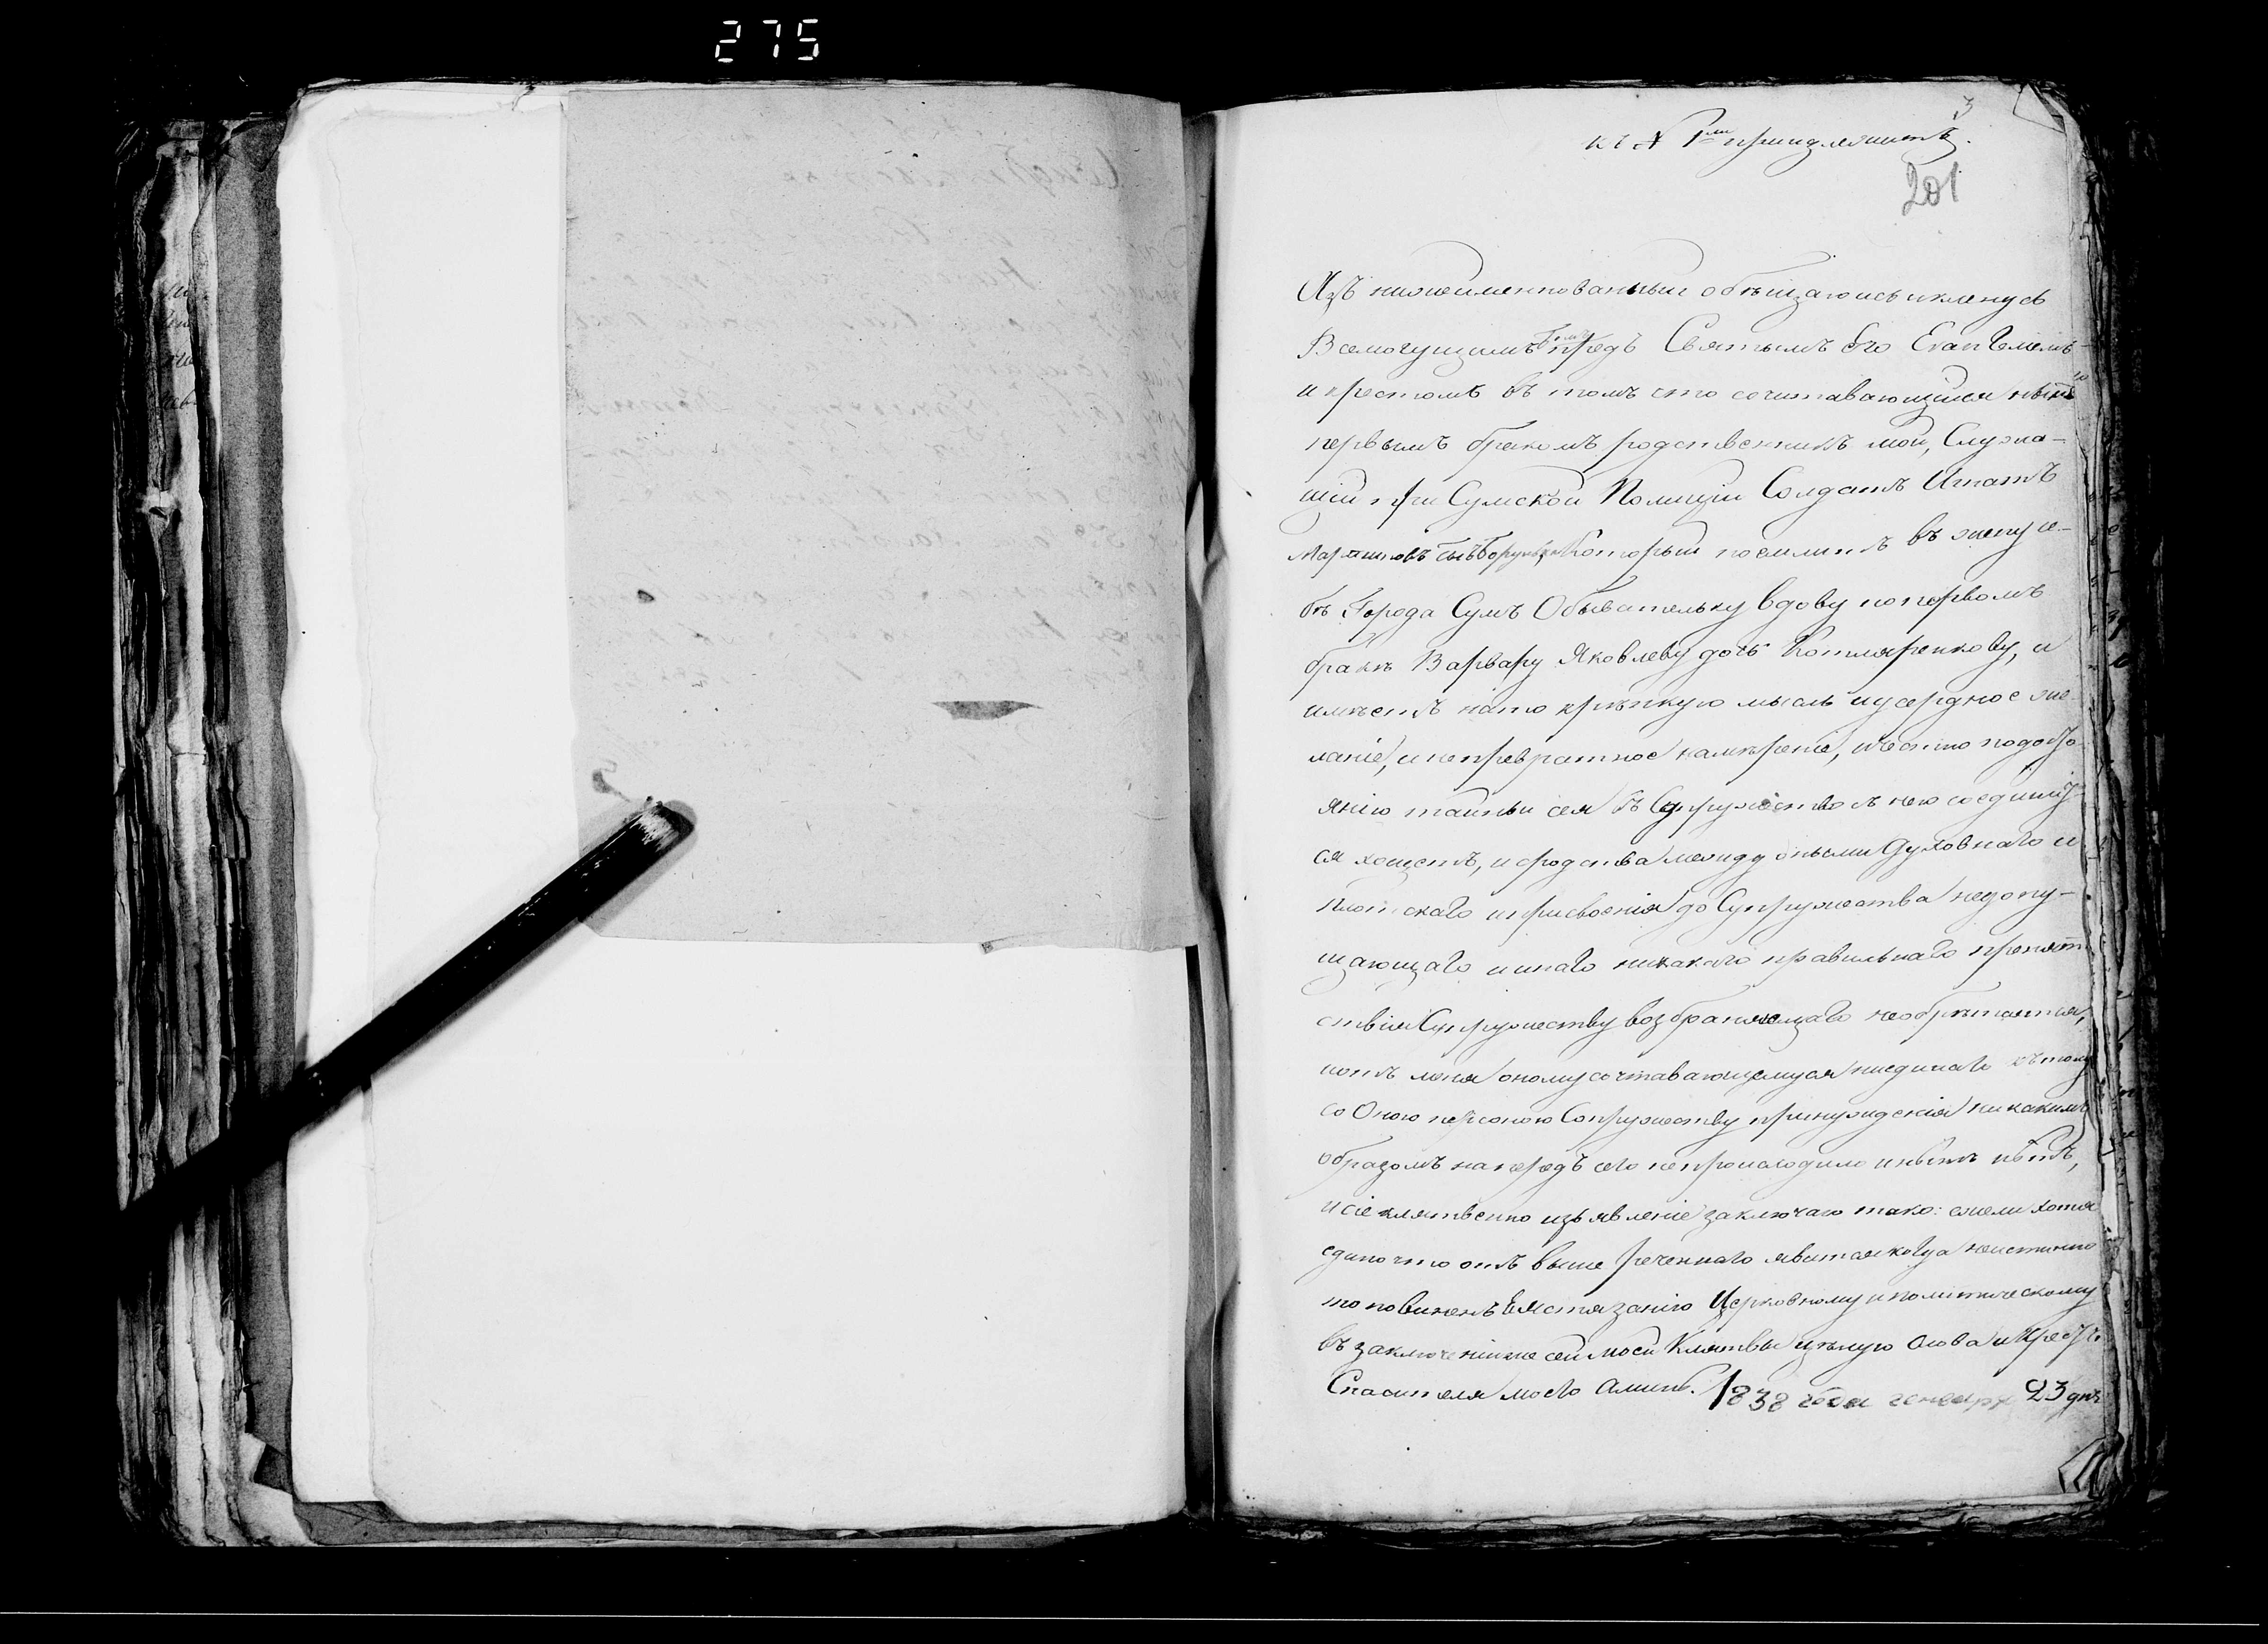 275
3
къ № 1му принадлежитъ.
201
Азъ нижеименнованный обѣщаюсь и кленусь
Всемогущимъ Богомъ предъ Святымъ Его Евангелемъ
и крестомъ въ томъ сто сочитавающійся нынѣ
первымъ бракомъ родственникъ мой, Служа-
щій при Сумской Полиціи Солдатъ Игнатъ
Мартиновъ сынъ который поемлитъ въ жену се-
бѣ Города Сумъ Обывательку вдову по первомъ
бракѣ Варвару Яковлеву дочь Котляренкову, и
имѣетъ на то крѣпкую мысль и усердное же-
ланіе, и непревратное намѣреніе, и честно по досто
янію тайны сея въ Супружество съ нею соединит
ся хощетъ, и сродства между оными Духовнаго и
плотскаго и присвоенія до Супружества недопу-
щающаго и инаго никакого правильнаго препят
ствія Супружеству возбраняющаго необрѣтается,
и отъ мене оному сочтавающемуся ниединаго къ тому
со Оною персоною Сопружеству принужденія никакимъ
образомъ напередъ сего непроисходило и нынѣ нѣтъ,
и сіе клятвенно изъявленіе заключаю тако: ежели хотя
едино что отъ выше реченнаго явится когда неистинно
то повиненъ Истязанію Церковному и политическому
въ заключеніи же сей моей Клятвы цѣлую слова и Крестъ
Спасителя моего Аминь. 1838 года генваря 23 днъ